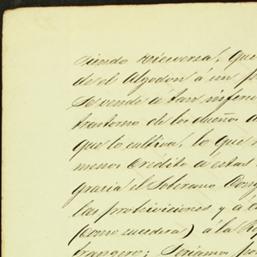 siendo viceversa, que
de el Algodon á un p
Se vende á tan inferi
trastorno de los dueños d
que lo cultiva, lo que
menos Credito á estas
gracia el Soberano Cong
las prohiviciones y a la
(como sucedera) á la
trangero; Seriamos po